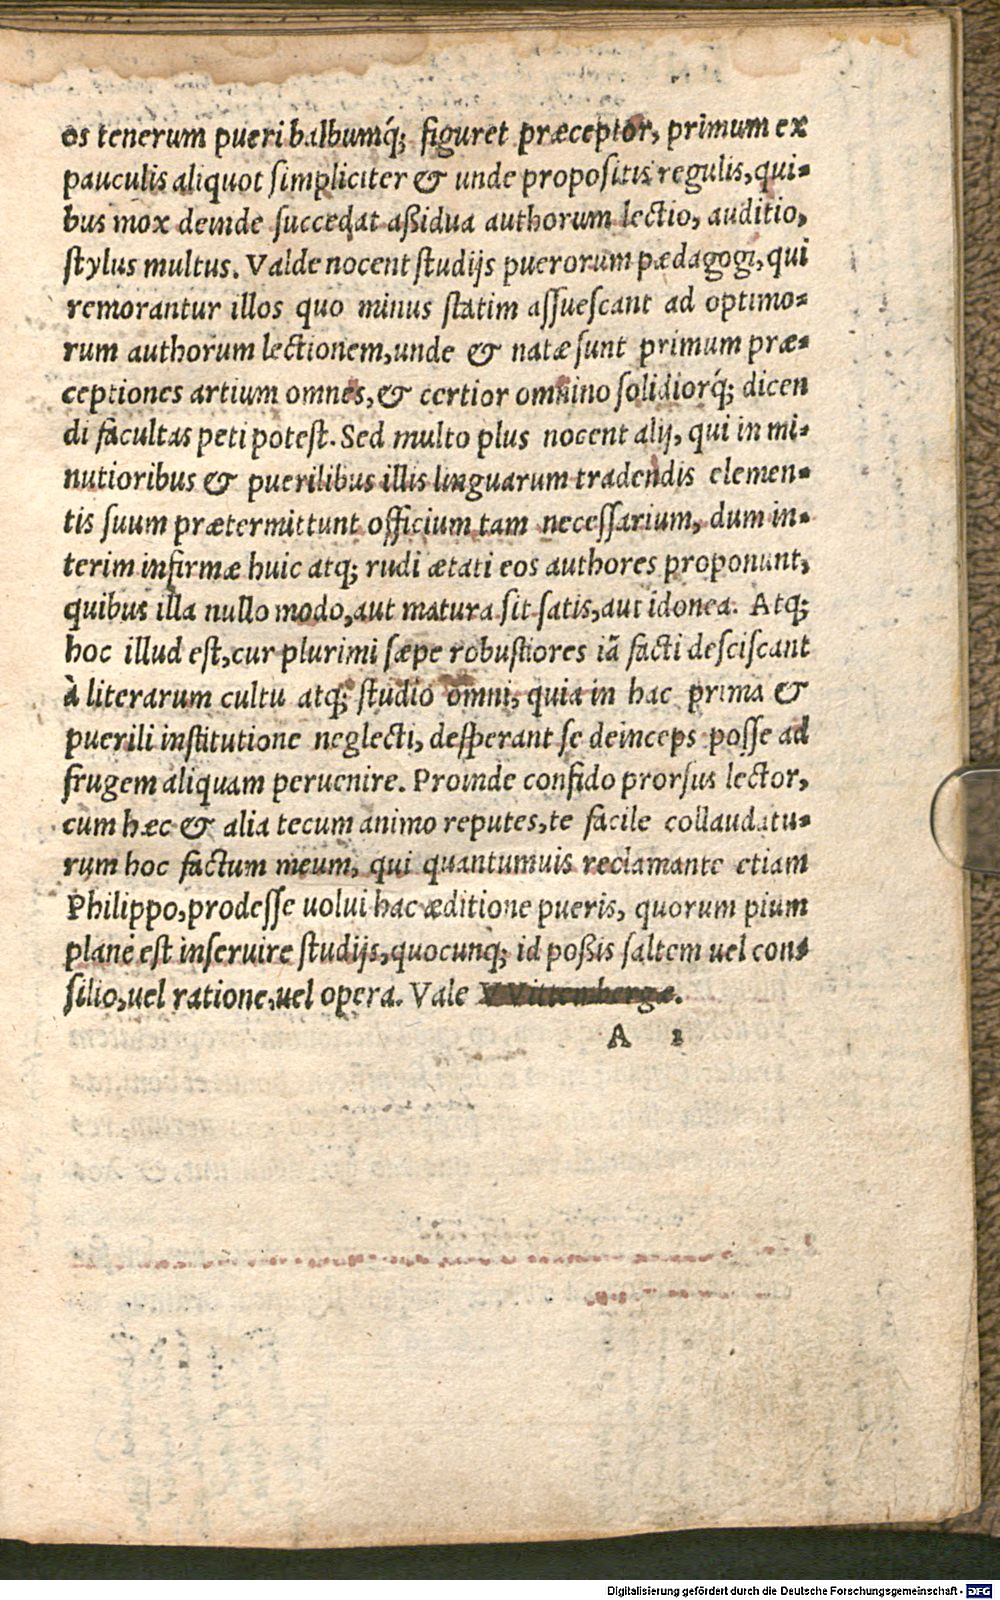 os tenerum pueri balbumq́; figuret præceptor, primum ex
pauculis aliquot simpliciter & unde propositis regulis, qui⸗
bus mox deinde succedat aßidua authorum lectio, auditio,
stylus multus. Valde nocent studijs puerorum pædagogi, qui
remorantur illos quo minus statim assuescant ad optimo⸗
rum authorum lectionem, unde & natæ sunt primum præ⸗
ceptiones artium omnes, & certior omnino solidiorq́; dicen
di facultas peti potest. Sed multo plus nocent alij, qui in mi⸗
nutioribus & puerilibus illis linguarum tradendis elemen⸗
tis suum prætermittunt officium tam necessarium, dum in⸗
terim infirmæ huic atq; rudi ætati eos authores proponunt,
quibus illa nullo modo, aut matura sit satis, aut idonea. Atq;
hoc illud est, cur plurimi sæpe robustiores iã facti desciscant
à literarum cultu atq; studio omni, quia in hac prima &
puerili institutione neglecti, desperant se deinceps posse ad
frugem aliquam peruenire. Proinde confido prorsus lector,
cum hæc & alia tecum animo reputes, te facile collaudatu⸗
rum hoc factum meum, qui quantumuis reclamante etiam
Philippo, prodesse uolui hac æditione pueris, quorum pium
plane est inseruire studijs, quocunq; id poßis saltem uel con⸗
silio, uel ratione, uel opera. Vale VVittembergæ.
A 2
Digitalisierung gefördert durch die Deutsche Forschungsgemeinschaft - DFG